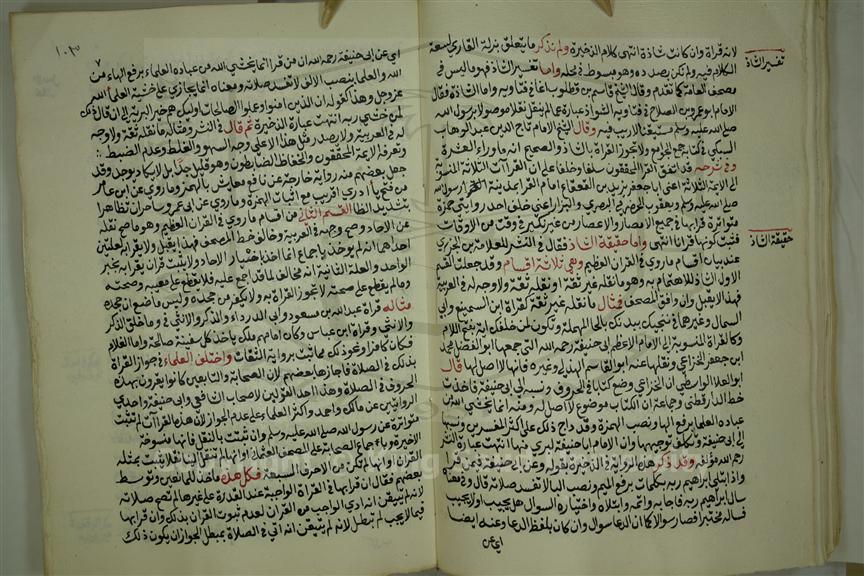 لانه قراة وان كانت شاذة انتهى كلام الذخيرة ولم نذكر ما يتعلق بزلة القاري لسعة
الكلام فيه ولم نكن بصدده وهو مبسوط في محله واما تفسير الشاذ فهو ما ليس في
تفسير الشاذ
مصحف العامة كما تقدم وقال الشيخ قاسم بن قطلوبغا في فتاويه واما الشاذة فقال
الامام ابو عمرو بن الصلاح في فتاويه الشواذ عبارة عما لم ينقل نقلا موصولا برسول الله
صلى الله عليه وسلم متيقنا لا ريب فيه وقال الشيخ الامام تاج الدين عبد الوهاب
السبكي في كتابه جمع الجوامع ولا تجوز القراة بالشاذ والصحيح انه ما وراء العشرة
وفي شرحه قد اتفق القراء المحققون سلفا وخلفا على ان القراآت الثلاثة المنسوبة
الى الائمة الثلاثة اعني ابا جعفر يزيد بن القعقاع امام القراء بمدينة رسول الله
صلى الله عليه وسلم ويعقوب الحضرمي البصري والبزار اعني خلف احد روايتي حمزة
متواترة قرا بها في جميع الامصار والاعصار من غير نكير في وقت من الاوقات
فثبت كونها قرانا انتهى واما حقيقة الشاذ فقال في النشر للعلامة بن الجزري
حقيقة الشاذ
عند بيان اقسام ما روي في القران العظيم وهي ثلاثة اقسام وقد جعلت القسم
الاول الشاذ للاهتمام به وهو ما نقله غير ثقة او نقله ثقة ولا وجه له في العربية
فهذا لا يقبل وان وافق المصحف فمثال ما نقله غير ثقة كقراة ابن السميفع وابي
السمال وغيرهما في ننجيك ببدنك بالحا المهملة وتكون لمن خلفك اية بفتح اللام
وكالقراة المنسوبة الى الامام الاعظم ابي حنيفة رحمه الله التي جمعها ابو الفضل محمد
ابن جعفر الخزاعي ونقلها عنه ابو القاسم الهذلي وغيره فانها لا اصل لها قال
ابو العلا الواسطي ان الخزاعي وضع كتابا في الحروف ونسبه الى ابي حنيفة فاخذت
خط الدارقطني وجماعة ان الكتاب موضوع لا اصل له ومنه انما يخشى الله من
عباده العلما برفع الها ونصب الهمزة وقد راج ذلك على اكثر المفسرين ونسبها
الى ابي حنيفة وتكلف توجيهها وان الامام ابا حنيفة لبري منها انتهت عبارة النشر
رحم الله مؤلفه وقد ذكر هذه الرواية في الذخيرة بقوله وعن ابي حنيفة فيمن قرا
واذ ابتلى ابراهيم ربه بكلمات برفع الميم ونصب البا لا تفسد صلاته قال ومعناها
سال ابراهيم ربه فاجابه واتمه وابتلاه واختياره السوال هل يجيب او لا يجيب
فساله مختبرا فصار سوالا كما ان الدعا سوال وان كان بلفظ الدعا وعنه ايضا
اي عن
١٠٣
اي عن ابي حنيفة رحمه الله ان من قرا انما يخشى الله من عباده العلماء برفع الهاء من
الله والعلما بنصب الالف لا تفسد صلاته ومعناه انما يجازي على خشية العلماء الله
عز وجل وهذا كقوله ان الذين امنوا وعملوا الصالحات اوليك هم خير البرية الى ان قال ذلك
لمن خشي ربه انتهت عبارة الذخيرة ثم قال في النشر ومثاله ما نقله ثقة ولا وجه
له في العربية ولا يصدر مثل هذا الا على وجه السهو والغلط وعدم الضبط
وتعرفه الايمة المحققون والحفاظ الضابطون وهو قليل جدا بل لا يكاد يوجد وقد
جعل بعضهم منه رواية خارجة عن نافع معائش بالهمزة وما روي عن ابن عامر
من فتح يا ادري اقريب مع اثبات الهمزة وما روي عن ابي عمرو ساحران تظاهرا
بتشديد الظا القسم الثاني من اقسام ما روي في القران العظيم وهو ما صح نقله
عن الاحاد وصح وجهه في العربية وخالف خط المصحف فهذا يقبل ولا يقرا به لعلتين
احداهما انه لم يوخذ باجماع انما اخذ باخبار الاحاد ولا يثبت قران يقرا به بخبر
الواحد والعلة الثانية انه مخالف لما قد اجمع عليه فلا يقطع على مغيبه وصحته
وما لم يقطع على صحته لا تجوز القراة به ولا يكفر من جحده وليس ما صنع ان جحده
مثاله قراة عبد الله بن مسعود وابي الدرداء والذكر والانثى في وما خلق الذكر
والانثى وقراة ابن عباس وكان امامهم ملك ياخذ كل سفينة صالحة واما الغلام
فكان كافرا ونحو ذلك مما ثبت برواية الثقات واختلف العلماء في جواز القراة
بذلك في الصلاة فاجازها بعضهم لان الصحابة والتابعين كانوا يقرون بهذه
الحروف في الصلاة وهذا احد القولين لاصحاب الشافعي وابي حنيفة واحدي
الروايتين عن مالك واحمد واكثر العلماء على عدم الجواز لان هذه القراآت لم تثبت
متواترة عن رسول الله صلى الله عليه وسلم وان ثبتت بالنقل فانها منسوخة
الاخيرة او باجماع الصحابة على المصحف العثماني او انها لم تنقل الينا نقلا يثبت بمثله
القران او انها لم تكن من الاحرف السبعة فكل هذه ماخذ للمانعين وتوسط
بعضهم فقال ان قرا بها في القراة الواجبة عند القدرة على غيرها لم تصح صلاته
لانه لم يتيقن انه ادى الواجب من القراة لعدم ثبوت القران بذلك وان قرا بها
فيما لا يجب لم تبطل لانه لم يتيقن انه اتى في الصلاة بمبطل لجواز ان يكون ذلك